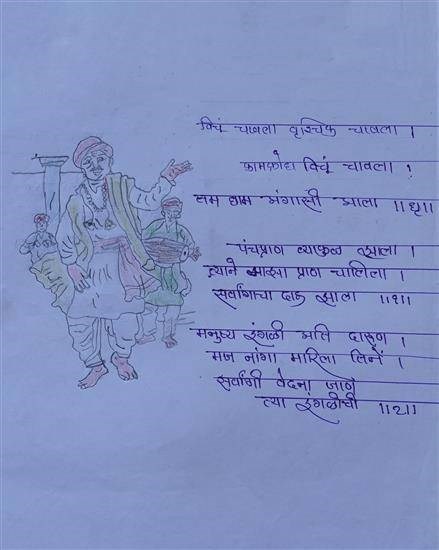 विंचू चावला वृश्चिक चावला ।
कामक्रोध विंचू चावला ।
तम घाम अंगासी आला ॥धृ॥
पंचप्राण व्याकुळ झाला ।
त्याने माझा प्राण चालिला ।
सर्वांगाचा दाह झाला ॥१॥
मनुष्य इंगळी अति दारूण ।
मज नांगा मारिला तिनें ।
सर्वांगी वेदना जाण
त्या इंगळीची ॥२॥